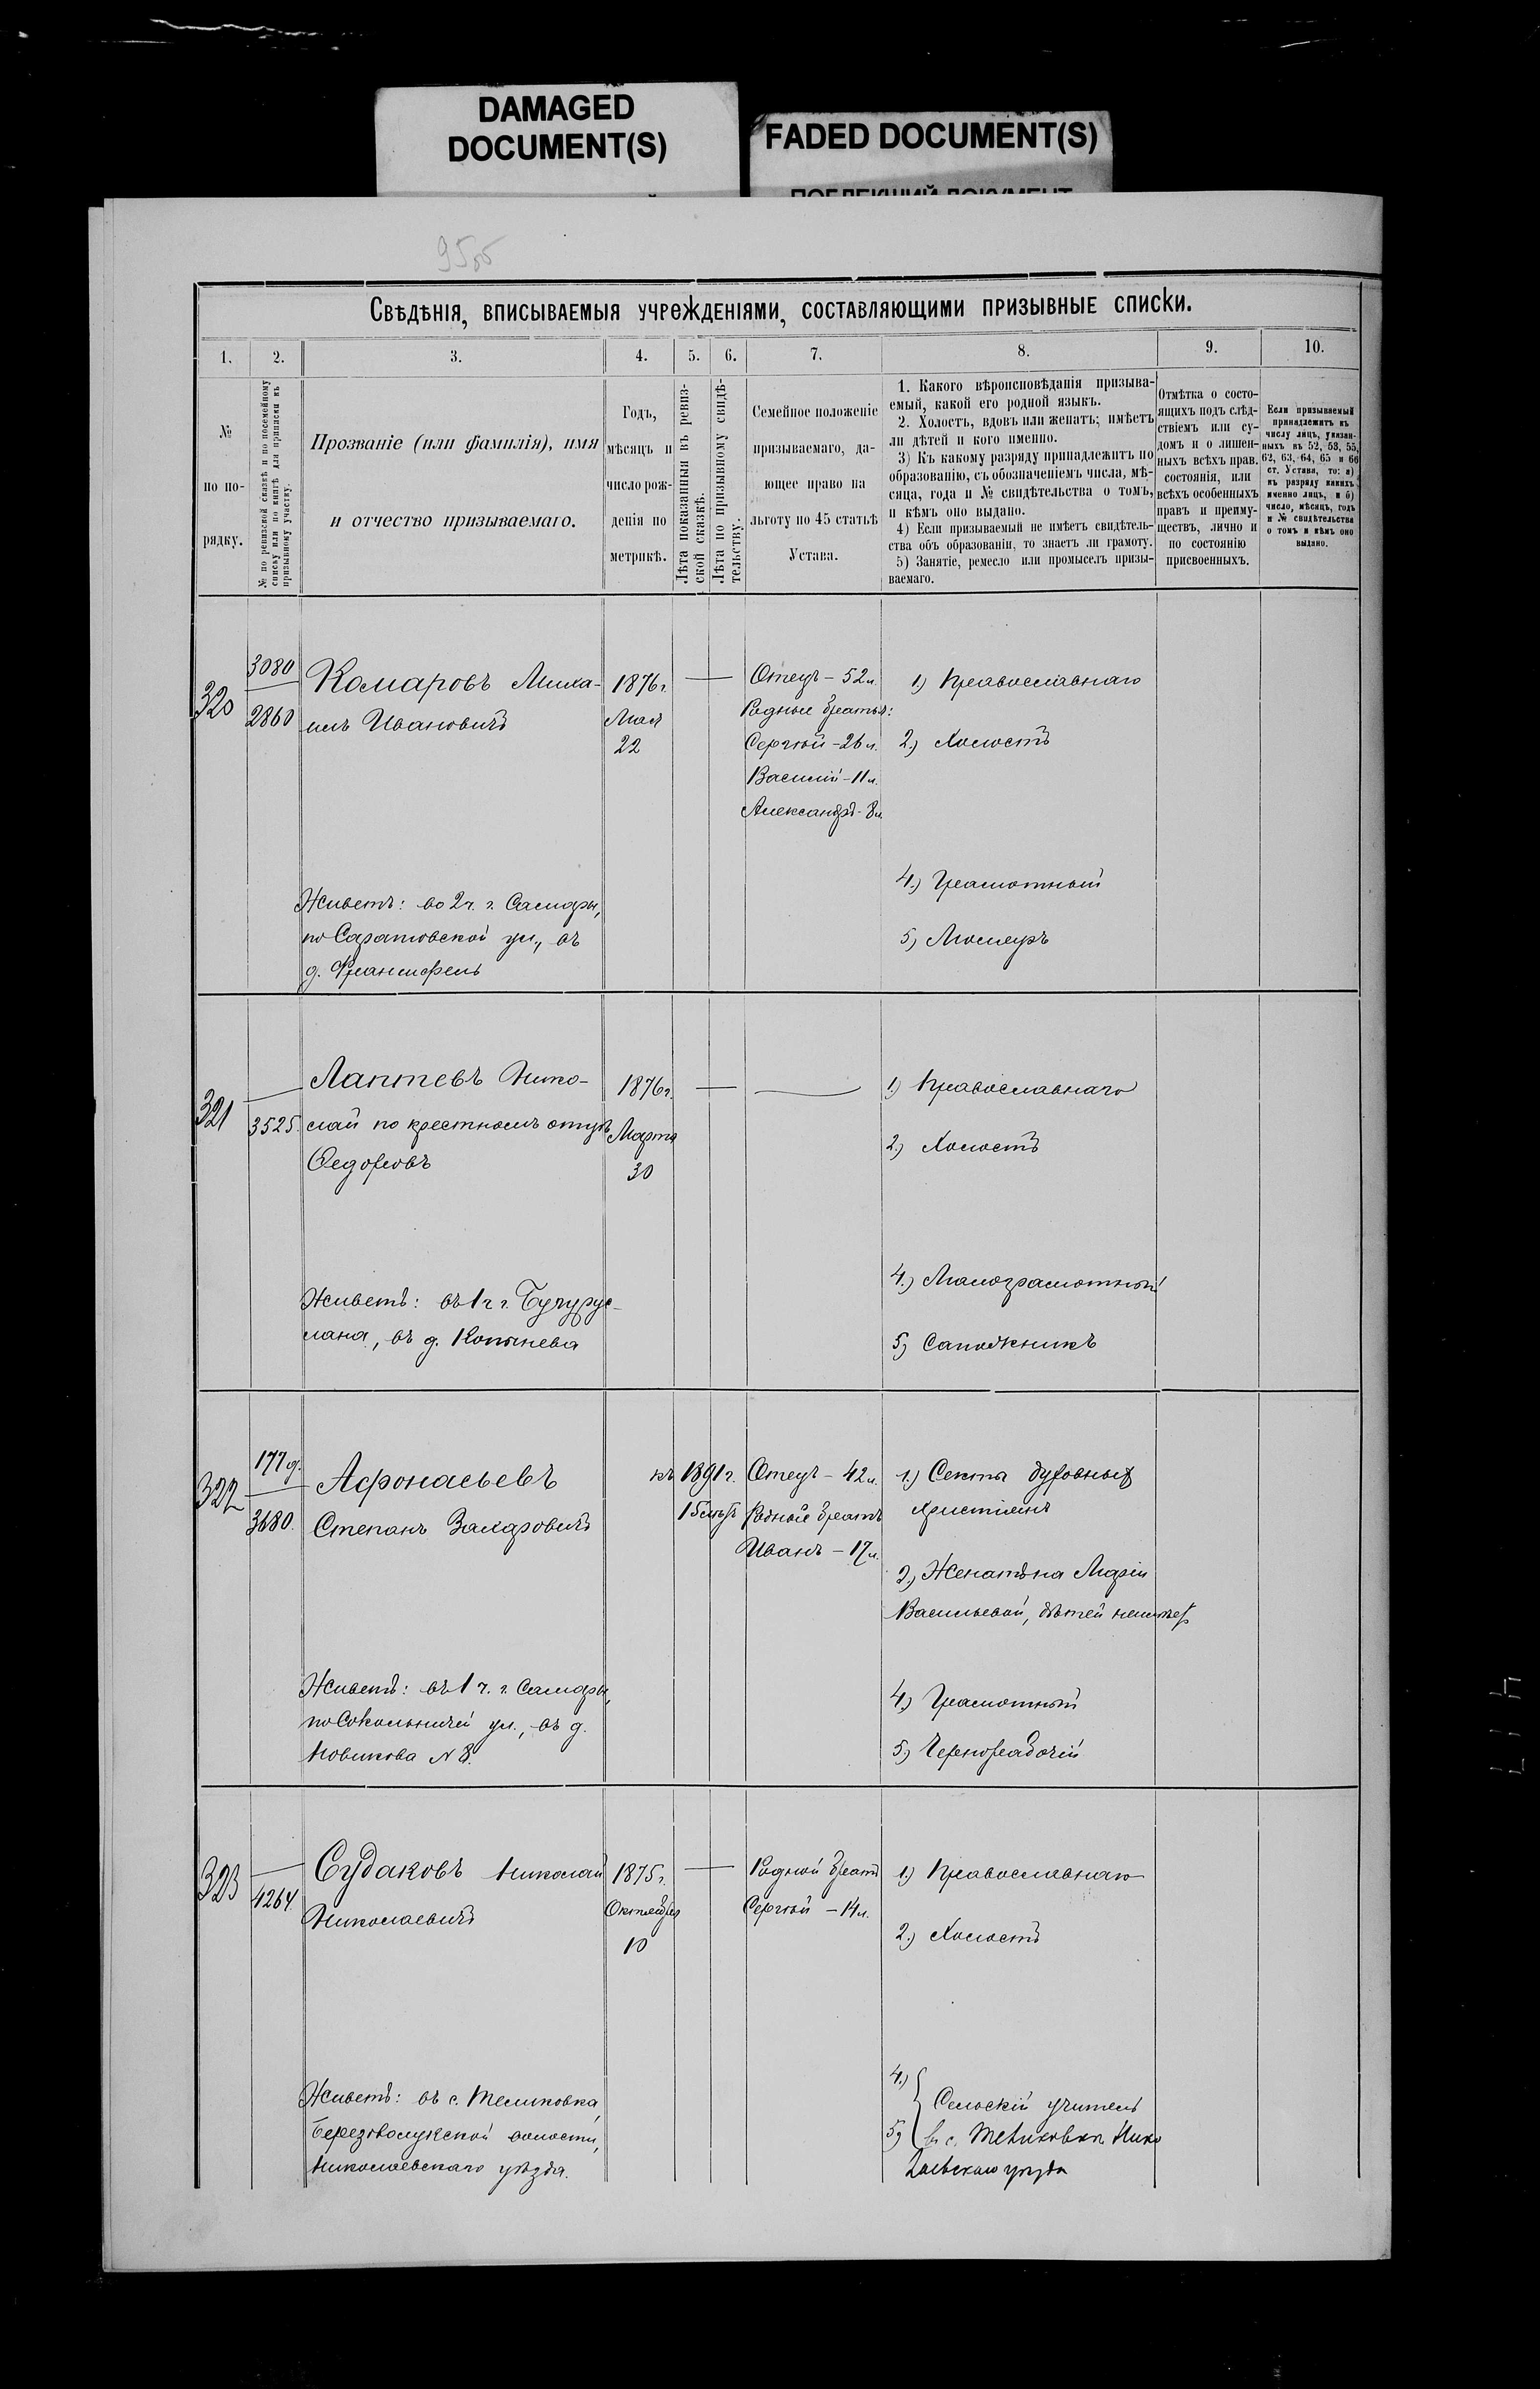 DAMAGED
DOCUMENT(S)
FADED DOCUMENT(S)
ПОБЛЕКШИЙ ДОКУМЕНТ
Свѣдѣнія, вписываемыя учрежденіями, составляющими призывные списки.
1. 2. 3. 4. 5. 6. 7. 8. 9. 10.
№
по по-
рядку.
№ по ревизской сказкѣ и по посемейному
списку или по книгѣ для приписки къ
призывному участку.
Прозваніе (или фамилія), имя
и отчество призываемаго.
Годъ,
мѣсяцъ и
число рож-
денія по
метрикѣ.
Лѣта показанныя въ ревиз-
ской сказкѣ.
Лѣта по призывному свидѣ-
тельству.
Семейное положеніе
призываемаго, да-
ющее право на
льготу по 45 статьѣ
Устава.
1. Какого вѣроисповѣданія призыва-
емый, какой его родной языкъ.
2. Холостъ, вдовъ или женатъ; имѣетъ
ли дѣтей и кого именно.
3) Къ какому разряду принадлежитъ по
образованію, съ обозначеніемъ числа, мѣ-
сяца, года и № свидѣтельства о томъ,
и кѣмъ оно выдано.
4) Если призываемый не имѣетъ свидѣтель-
ства объ образованіи, то знаетъ ли грамоту.
5) Занятіе, ремесло или промыселъ призы-
ваемаго.
Отмѣтка о состо-
ящихъ подъ слѣд-
ствіемъ или су-
домъ и о лишен-
ныхъ всѣхъ прав.
состоянія, или
всѣхъ особенныхъ
правъ и преиму-
ществъ, лично и
по состоянію
присвоенныхъ.
Если призываемый
принадлежитъ къ
числу лицъ, указан-
ныхъ въ 52, 53, 55,
62, 63, 64, 65 и 66
ст. Устава, то: а)
къ разряду какихъ
именно лицъ, и б)
число, мѣсяцъ, годъ
и № свидѣтельства
о томъ и кѣмъ оно
выдано.
320
3080
2860
Комаровъ Миха-
илъ Ивановичъ
Живетъ: во 2 ч. г. Самары,
по Саратовской ул., въ
д.
1876 г.
Мая
22
Отецъ - 52 л.
Родные братья:
Сергѣй - 26 л.
Василій - 11 л.
Александръ - 8 л.
1) Православнаго
2) Холостъ
4.) Грамотный
5)
321
3525.
Лаптевъ Нико-
лай по крестномъ отцѣ
Федоровъ
Живетъ: въ 1 ч г. Бугурус-
лана, въ д. Копынева
1876 г.
Марта
30
1) Православнаго
2.) Холостъ
4.) Малограмотный
5) Сапожникъ
322
177 д.
3680.
Афонасьевъ
Степанъ Захаровичъ
Живетъ: въ 1 ч. г. Самары,
по Сокольничей ул., въ д.
Новикова № 8.
къ 1891 г.
15 лѣтъ
Отецъ - 42 л.
Родной братъ
Иванъ - 17 л.
1.) Секты духовныхъ
христіанъ
2.) Женатъ на Маріи
Васильевой, дѣтей неимѣетъ
4.) Грамотный
5.) Чернорабочій
323
4264.
Судаковъ Николай
Николаевичъ
Живетъ: въ с. Теликовка,
Березоволукской волости,
Николаевскаго уѣзда.
1875 г.
Октября
10
Родной братъ
Сергѣй - 14 л.
1.) Православнаго
2.) Холостъ
4.)
5) Сельскій учитель
въ с. Теликовкѣ Нико
лаевскаго уѣзда